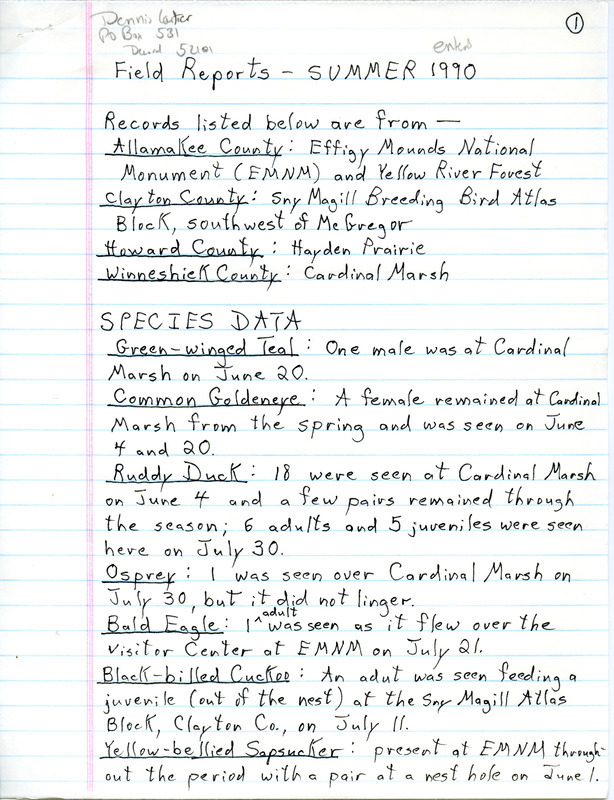 Dennis Carter
PO Box 531
52101
①
enterd
Field Reports - SUMMER 1990
Records listed below are from —
Allamakee County: Effigy Mounds National
Monument (EMNM) and Yellow River Forest
Clayton County: Sny Magill Breeding Bird Atlas
Block, southwest of McGregor
Howard County: Hayden Prairie
Winneshiek County: Cardinal Marsh
SPECIES DATA
Green-winged Teal: One male was at Cardinal
Marsh on June 20.
Common Goldeneye: A female remained at Cardinal
Marsh from the spring and was seen on June
4 and 20.
Ruddy Duck: 18 were seen at Cardinal Marsh
on June 4 and a few pairs remained through
the season; 6 adults and 5 juveniles were seen
here on July 30.
Osprey: 1 was seen over Cardinal Marsh on
July 30, but it did not linger.
Bald Eagle: 1 ^adult was seen as it flew over the
Visitor Center at EMNM on July 21.
Black-billed Cuckoo: An adut was seen feeding a
juvenile (out of the nest) at the Sny Magill Atlas
Block, Clayton Co., on July 11.
Yellow-bellied Sapsucker: present at EMNM through-
out the period with a pair at a nest hole on June 1.